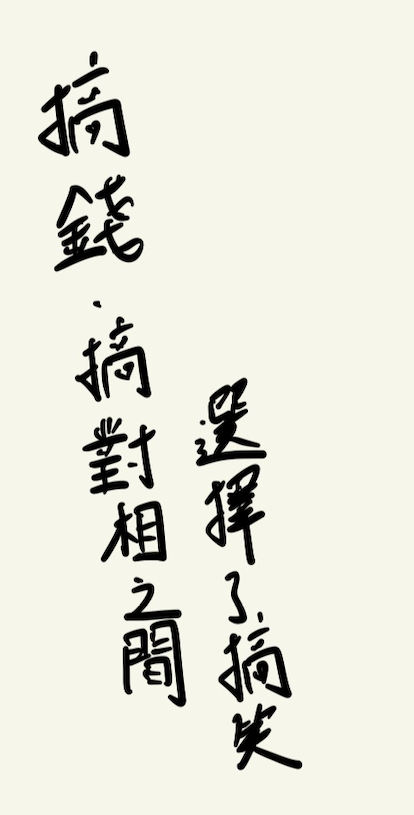 搞錢·搞對相之間
選擇了搞笑